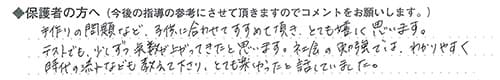 ◆保護者の方へ（今後の指導の参考にさせて頂きますのでコメントをお願いします。）
手作りの問題など、子供に合わせてすすめて頂き、とても嬉しく思います。
テストでも、少しずつ点数が上がってきたと思います。社会の勉強では、わかりやすく
時代の流れなども教えて下さり、とても楽しかったと話していました。